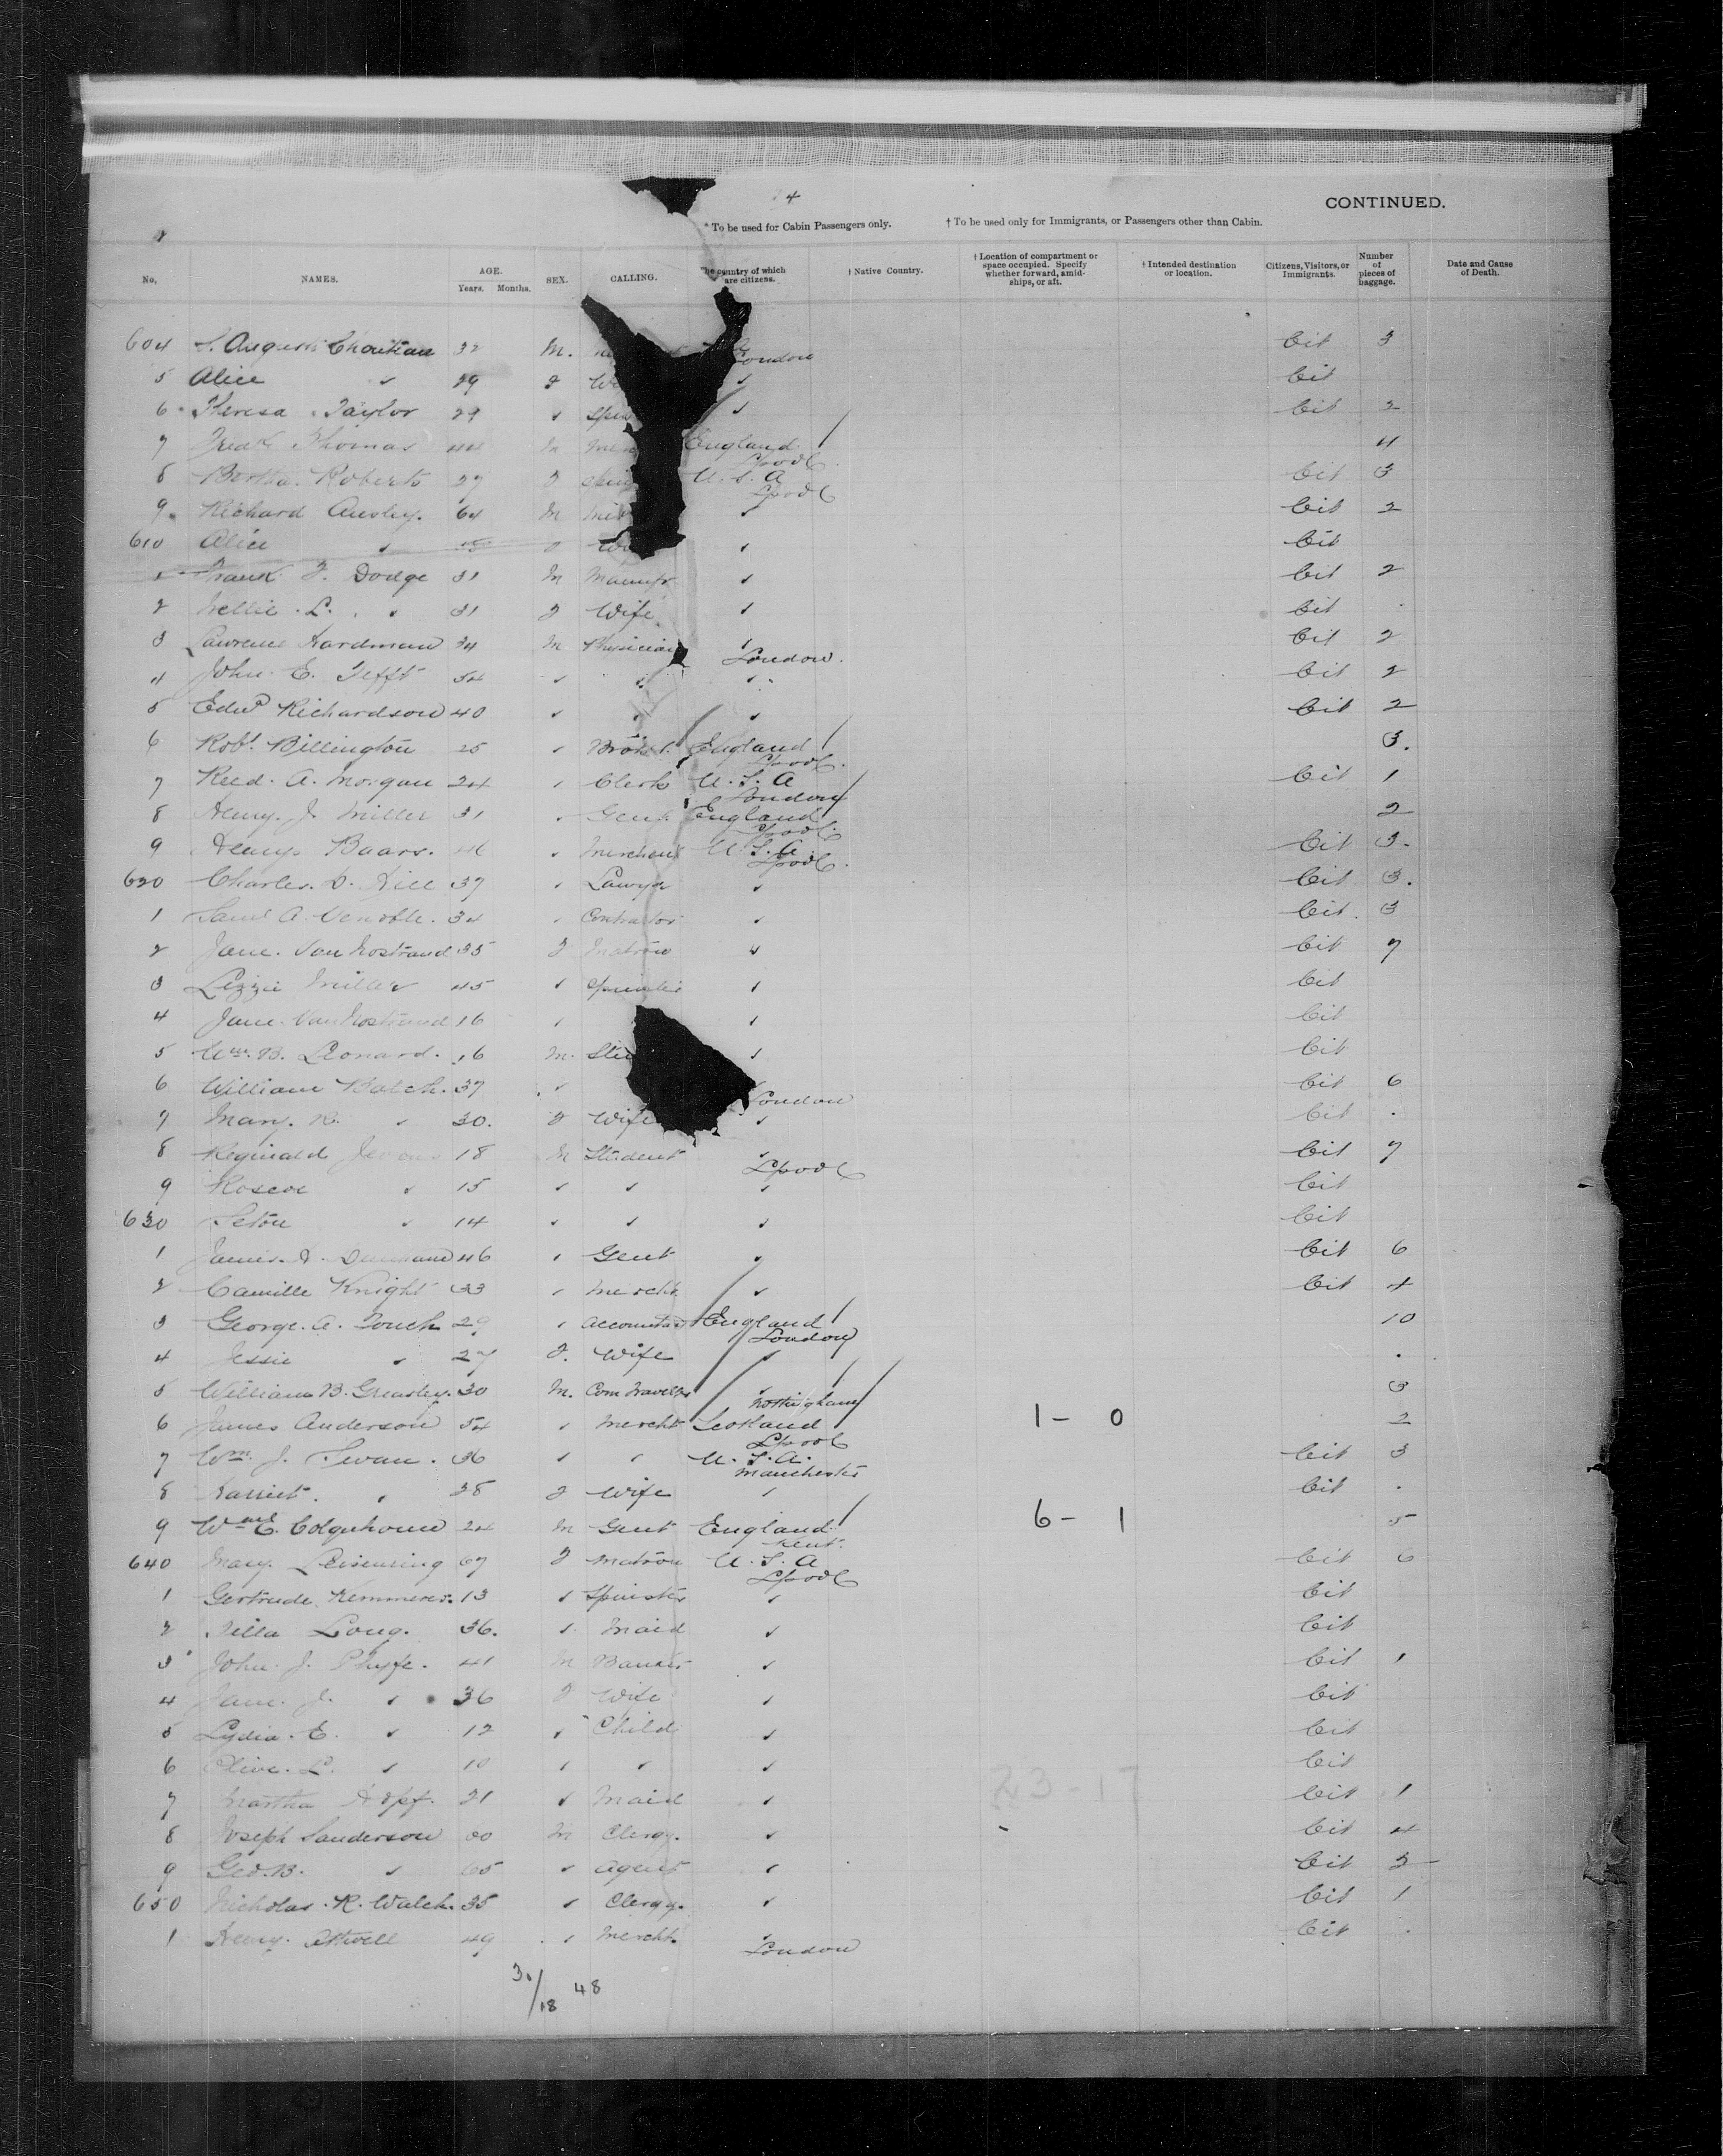 4
CONTINUED.
* To be used for Cabin Passengers only. † To be used only for Immigrants, or Passengers other than Cabin.
No. NAMES. AGE. Years. Months. SEX. CALLING. he country of which are citizens. † Native Country. † Location of compartment or space occupied. Specify whether forward, amidships, or aft. † Intended destination or location. Citizens, Visitors, or Immigrants. Number of pieces of baggage. Date and Cause of Death.
604 32 M. London Cit 3
5 Alice 〃 29 F W 〃 Cit
6 Theresa Taylor 29 〃 Spin 〃 Cit 2
7 Fredk Thomas 44 M Mer England / Lpool 4
8 Bertha Roberts 27 F Spin U.S.A Lpool Cit 3
9 Richard 64 M 〃 Cit 2
610 Alice 〃 F Wi 〃 Cit
1 Frank F. Dodge 31 M Manufr 〃 Cit 2
2 Nellie L. 〃 31 F Wife 〃 Cit
3 Lawrence Hardman 34 M Physician 〃 London. Cit 2
4 John E. Tefft 54 〃 〃 〃 Cit 2
5 Edwd Richardson 40 〃 〃 〃 Cit 2
6 Robt Billington 25 〃 Broker England / Lpool. 3.
7 Reed. A. Morgan 24 〃 Clerk U.S.A London Cit 1
8 Henry. J. Miller 31 〃 Gent England / Lpool. 2
9 Henry Baars. 46 〃 Merchant U.S.A. Lpool. Cit 3.
620 Charles. D. Hill 37 〃 Lawyer 〃 Cit 3.
1 Saml A. Venable. 34 〃 Contractor 〃 Cit. 3
2 Jane. Van Nostrand 35 F Matron 〃 Cit 7
3 Lizzie Miller 45 〃 Spinster 〃 Cit
4 Jane. Van Nostrand 16 〃 〃 Cit
5 Wm. B. Leonard. 16 M. Stu 〃 Cit
6 William Balch. 37 〃 London Cit 6
7 Mary. R. 〃 30. F Wife 〃 Cit
8 Reginald 18 M Student 〃 Lpool Cit 7
9 Roscoe 〃 15 〃 〃 〃 Cit
630 Seton 〃 14 〃 〃 〃 Cit
1 James. H. 46 〃 Gent 〃 Cit 6
2 Camille Knight 33 〃 Mercht 〃 Cit 4
3 George. A. Touch 29 〃 Accountant England / London 10
4 Jessie 〃 27 F. Wife 〃
5 William B. Greasley. 30 M. Com Traveller 〃 / Nottingham 3
6 James Anderson 54 〃 Mercht Scotland / Lpool 1 - 0 2
7 Wm. J. Swan. 36 〃 〃 U.S.A. Manchester Cit 3
8 Harriet. 〃 38 F Wife 〃 Cit
9 Wm E. Colquhoun 24 M Gent England / Kent. 6 - 1 5
640 Mary Leisenring 67 F Matron U.S.A Lpool Cit 6
1 Gertrude Kemmerer. 13 〃 Spinster 〃 Cit
2 Tilla Long. 36. 〃 Maid 〃 Cit
3 John. J. Phyfe. 41 M Banker 〃 Cit 1
4 Jane. J. 〃 36 F Wife 〃 Cit
5 Lydia. E. 〃 12 〃 Child 〃 Cit
6 Olive. L. 〃 10 〃 〃 〃 Cit
23 - 17
7 Martha Hopf. 21 〃 Maid 〃 Cit 1
8 Joseph Sanderson M Clergy. 〃 Cit 4
9 Geo. B. 〃 65 〃 Agent 〃 Cit 2
650 Nicholas. R. Walsh. 35 〃 Clergy. 〃 Cit 1
1 Henry. Attwell 49 〃 Mercht. 〃 London Cit
30/18 48